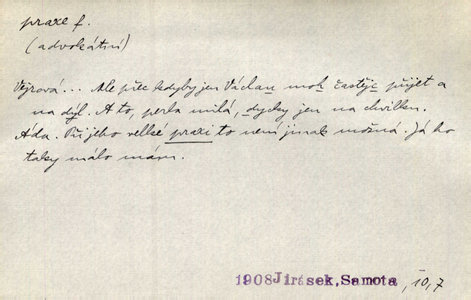 praxe f.
(advokátní)
Vejrová... Ale přec kdyby jen Václav moh častějc přijet a
na dýl. A to, perla milá, dycky jen na chvilku.
Áda. Při jeho velké praxi to není jinak možná. Já ho
taky málo mám.
1908 Jirásek, Samota, 10,7